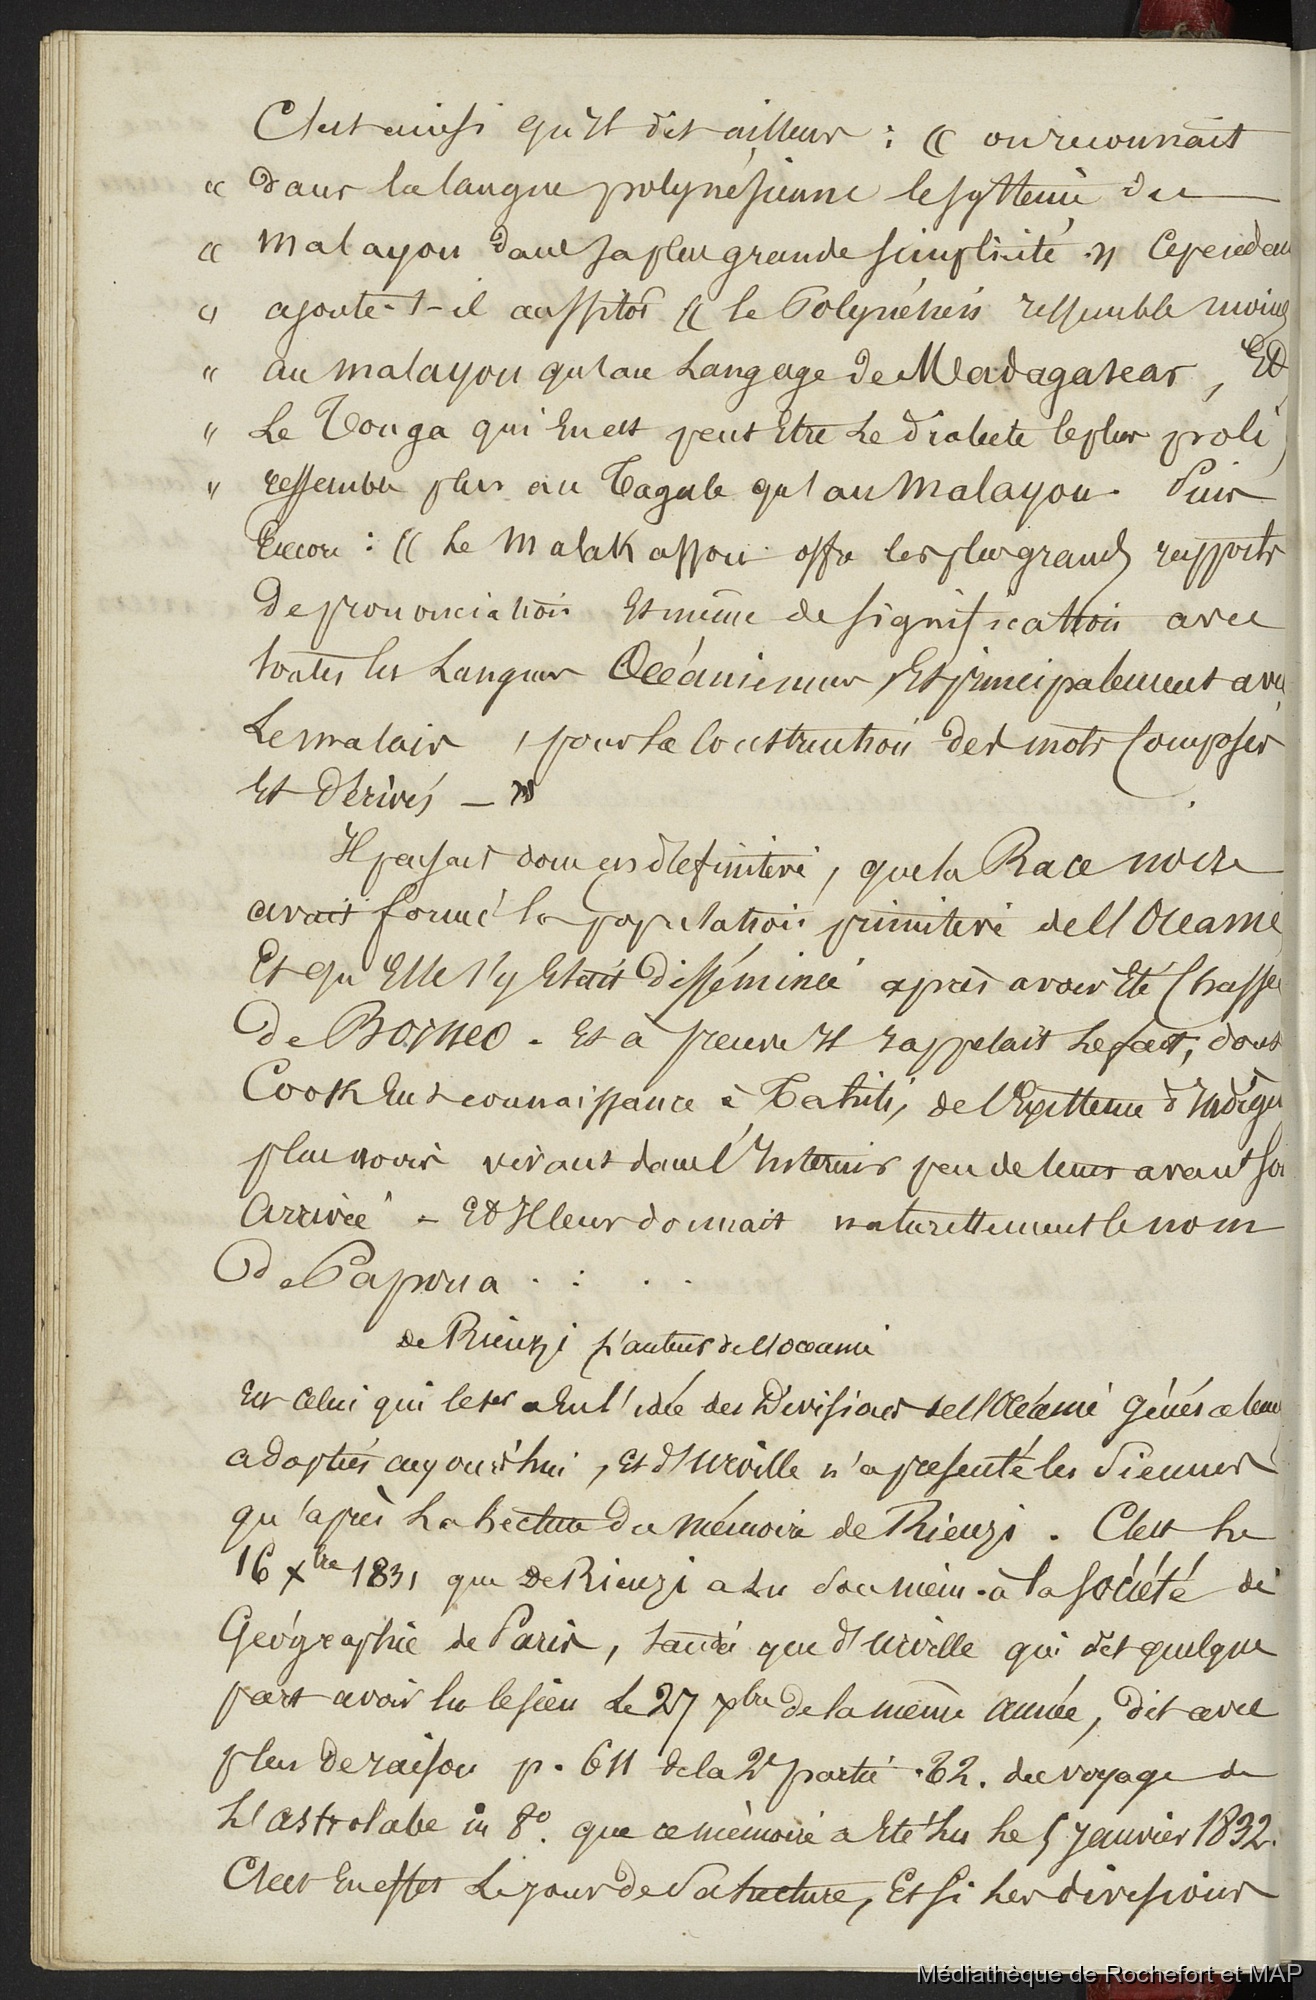 C'est ainsi qu'il dit ailleurs : « on reconnait
« dans la langue polynésienne le système du
« malayou dans sa plus grande simplicité » Cependan
« ajoute-t-il aussitôt « le Polynésien ressemble moins
« au malayou qu'au Langage de Madagascar, Et
« Le Tonga qui En est peut Etre Le dialecte le plus poli
« ressemble plus au Tagale qu'au malayou. Puis
Encore : « Le Malakassou offre les plus grands rapports
De prononciation Et même de signification avec
toutes les Langues Océaniennes, Et principalement avec
Le malais, pour la Construction des mots Composés
Et dérivés — »
Il pensait donc en définitive, que la Race noire
avait formé la population primitive de l'Océanie
Et qu'Elle s'y Etait Disséminée après avoir Eté Chassée
De Bornéo. Et à preuve Il rappelait Le fait, dont
Cook Eut connaissance à Tahiti, de l'Existence d'Indigè
plus noirs vivant dans l'Intérieur peu de tems avant so
Arrivée - Et Il leur donnait naturellement le nom
De Papoua . : . .
de Rienzi l'auteur de l'océanie
Est celui qui le 1er a Eu l'idée des Divisions de l'Océanie généralem
adoptées aujourd'hui, Et d'Urville n'a présenté les Siennes
qu'après La Lecture Du mémoire de Rienzi. C'est Le
16 xbre 1831 que De Rienzi a Lu Son mém. à la Société de
Géographie de Paris, tandis que d'Urville qui dit quelque
part avoir lu le sien Le 27 xbre de la même année, dit avec
plus De raison p. 611 de la 2e partie . T2. du voyage de
L'astrolabe in 8o. que ce mémoire a Eté lu Le 5 Janvier 1832.
C'est En effet Le jour De Sa Lecture, Et Si Les divisions
Médiathèque de Rochefort et MAP